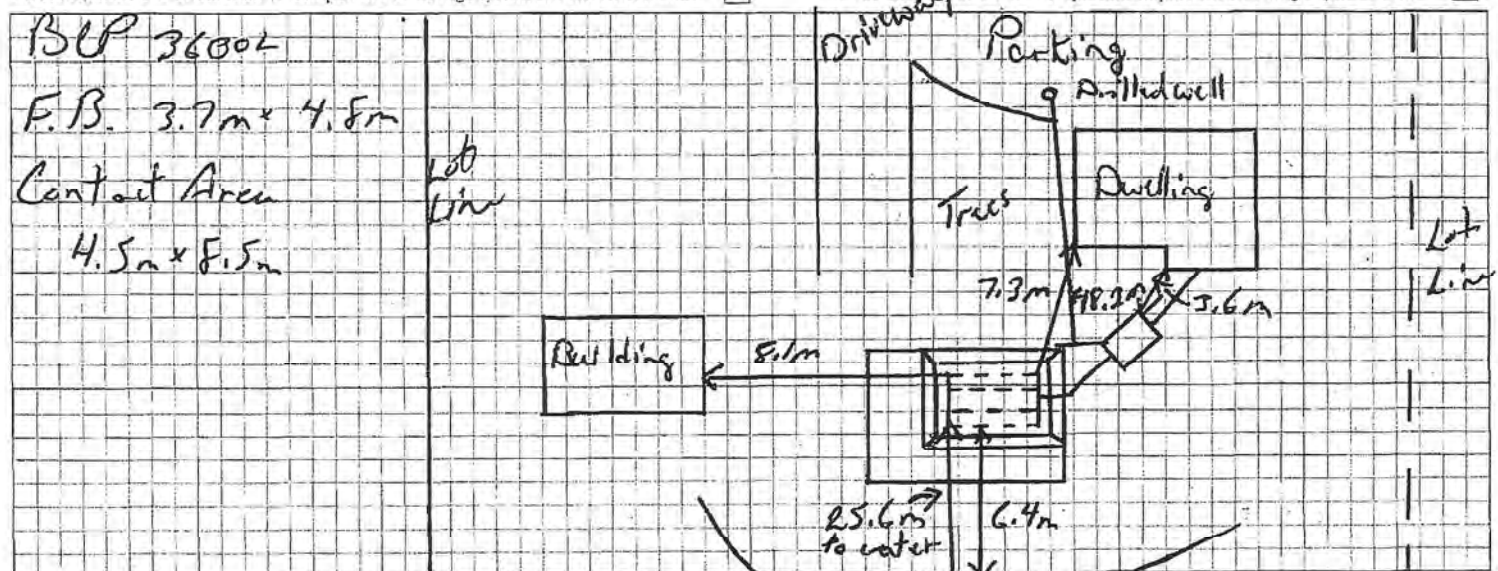 BCP 3600L
F.B. 3.7m x 4.8m
Contact Area
4.5m x 8.5m
Lot
Line
Driveway
Parking
Drilled well
Trees
Dwelling
Lot
Line
7.3m
48.2m
3.6m
Building
8.1m
25.6m
to water
6.4m